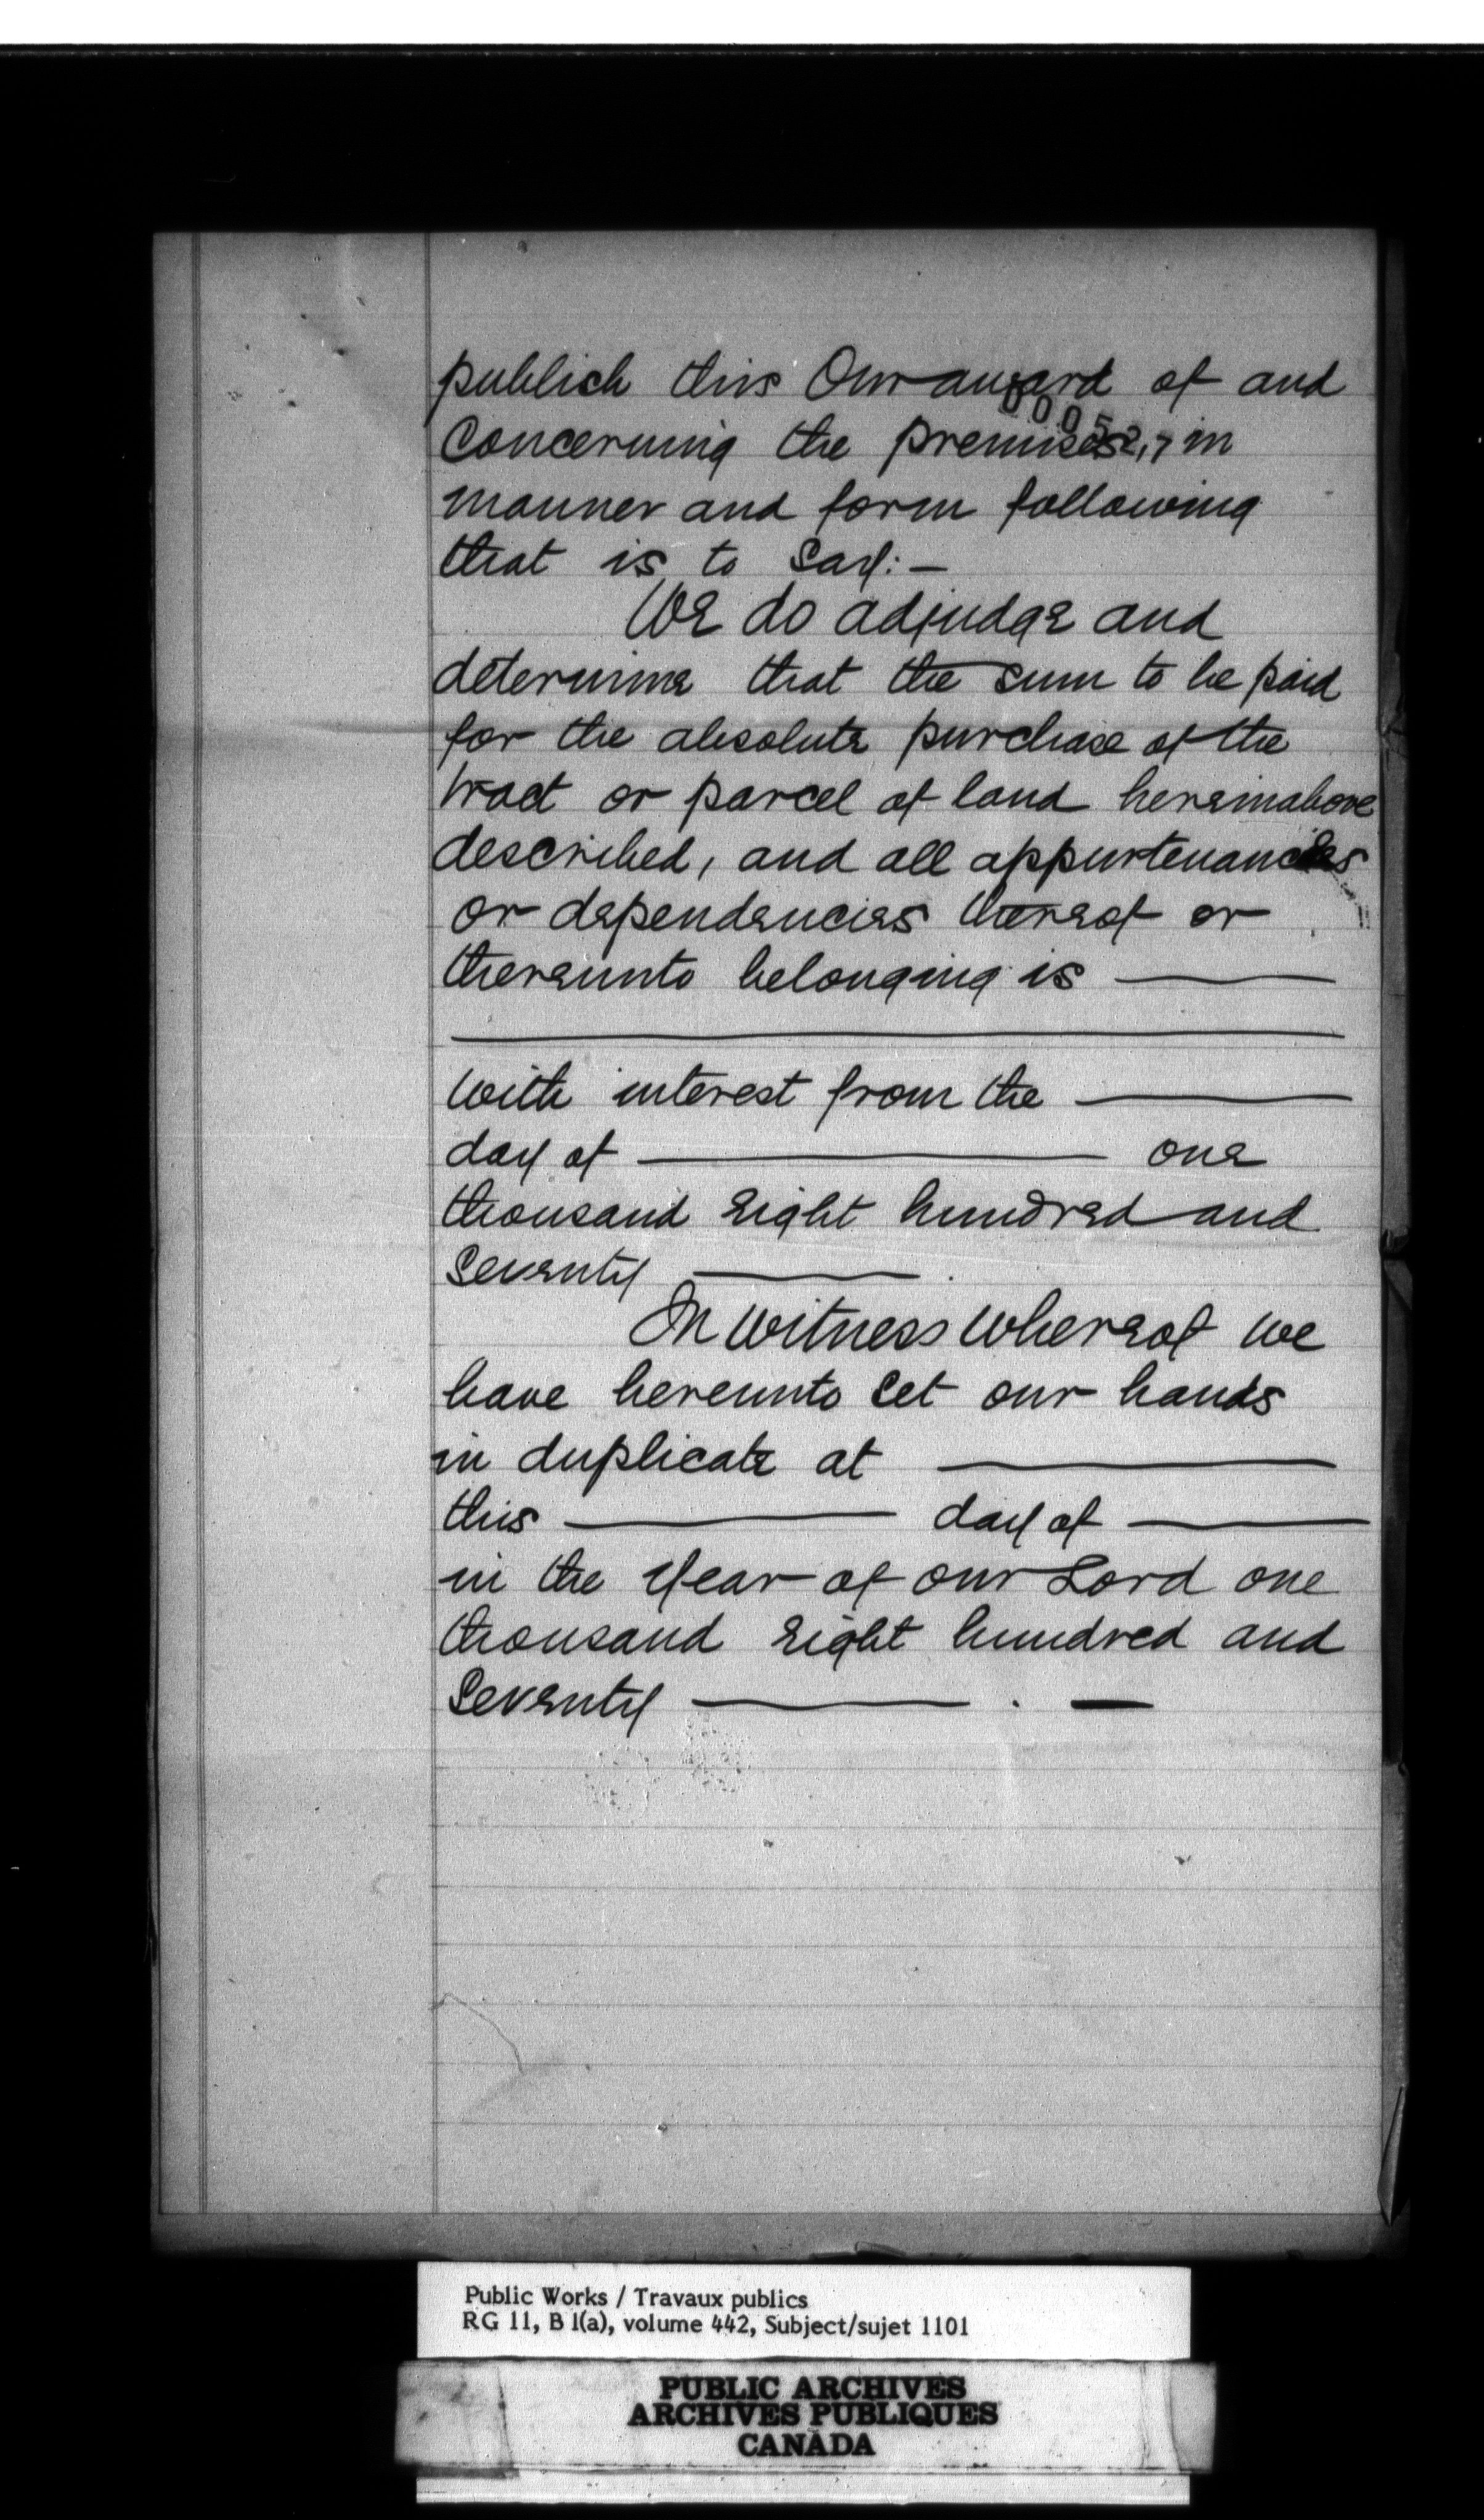 publish this Our award of and
000527
concerning the premises, in
manner and form following
that is to say: —
We do adjudge and
determine that the sum to be paid
for the absolute purchase of the
tract or parcel of land hereinabove
described, and all appurtenances
or dependencies thereof or
thereunto belonging is ———
———
with interest from the ———
day of ——— one
thousand eight hundred and
seventy ——— .
In Witness Whereof we
have hereunto set our hands
in duplicate at ———
this ——— day of ———
in the year of our Lord one
thousand eight hundred and
seventy ——— . —
Public Works / Travaux publics
RG 11, B 1(a), volume 442, Subject/sujet 1101
PUBLIC ARCHIVES
ARCHIVES PUBLIQUES
CANADA